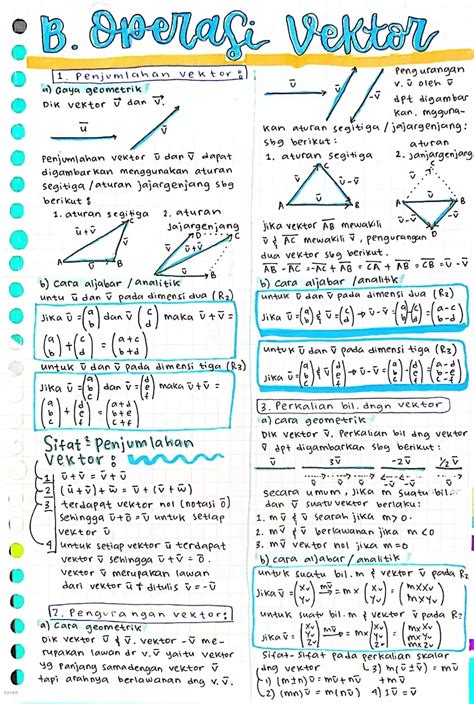 B. Operasi Vektor
1. Penjumlahan vektor :
a) Gaya geometrik
Dik vektor u⃗ dan v⃗.
ū
v̄
Penjumlahan vektor ū dan v̄ dapat
digambarkan menggunakan aturan
segitiga / aturan jajargenjang sbg
berikut :
1. aturan segitiga
2. aturan
jajargenjang
A
B
C
ū+v̄
v̄
ū
A
B
C
D
ū+v̄
b) Cara aljabar / analitik
untu ū dan v̄ pada dimensi dua (R2)
Jika ū = (a b) dan v̄ (c d) maka ū + v̄ =
(a b) + (c d) = (a+c b+d)
untuk ū dan v̄ pada dimensi tiga (R3)
Jika ū = (a b c) dan v̄ = (d e f) maka ū+v̄ =
(a b c) + (d e f) = (a+d b+e c+f)
Sifat² Penjumlahan
Vektor :
1 ū + v̄ = v̄ + ū
2 (ū + v̄) + w̄ = ū + (v̄ + w̄)
3 terdapat vektor nol (notasi ō)
Sehingga ū + ō = ū untuk setiap
vektor ū
4 untuk setiap vektor ū terdapat
vektor v̄ sehingga ū + v̄ = ō.
vektor v̄ merupakan lawan
dari vektor ū & ditulis v̄ = -ū
2. Pengurangan vektor:
a) Cara geometrik
Dik vektor ū & v̄. vektor -v̄ me-
rupakan lawan dr v. v̄ yaitu vektor
yg panjang sama dengan vektor v̄
tapi arahnya berlawanan dng v. v̄.
ū
v̄
-v̄
Pengurangan
v. ū oleh v̄
dpt digambar
kan. mgguna-
kan aturan segitiga / jajargenjang:
sbg berikut :
1. aturan segitiga
aturan
2. janjargenjang
A
B
C
v̄
ū-v̄
ū
A
B
C
D
ū-v̄
jika vektor AB mewakili
ū & AC mewakili v̄, pengurangan
dua vektor sbg berikut.
AB - AC = -AC + AB = CA + AB = CB = ū - v̄
b) cara aljabar / analitik
untuk ū dan v̄ pada dimensi dua (R2)
Jika ū = (a b) & v̄ = (c d) → ū - v̄ = (a b) - (c d) = (a-c b-d)
untuk ū dan v̄ pada dimensi tiga (R3)
Jika ū = (a b c) & v̄ = (d e f) → ū - v̄ = (a b c) - (d e f) = (a-d b-e c-f)
3. Perkalian bil. dngn vektor
a) cara geometrik
Dik vektor v̄. Perkalian bil dng vektor
v̄ dpt digambarkan sbg berikut :
v̄ 3v̄ -2v̄ 1/2 v̄
v̄ v̄ v̄ -v̄ -v̄
secara umum, jika m suatu bil
dan v̄ suatu vektor berlaku:
1. mv̄ & v̄ searah jika m > 0.
2. mv̄ & v̄ berlawanan jika m < 0
3. mv̄ vektor nol jika m = 0
b) cara aljabar / analitik
untuk suatu bil. m & vektor v̄ pada R2
Jika v̄ = (xv yv) mv̄ → = mx (xv yv) = (mxxv mxyv)
untuk suatu bil. m & vektor v̄ pada R3
Jika v̄ = → = mx =
Sifat-sifat pada perkalian skalar
dng vektor
1) (m±n)v̄ = mv̄ ± nv̄
2) (mn)v̄ = m(nv̄)
3) m(ū±v̄) = mū ± mv̄
4) 1v̄ = v̄